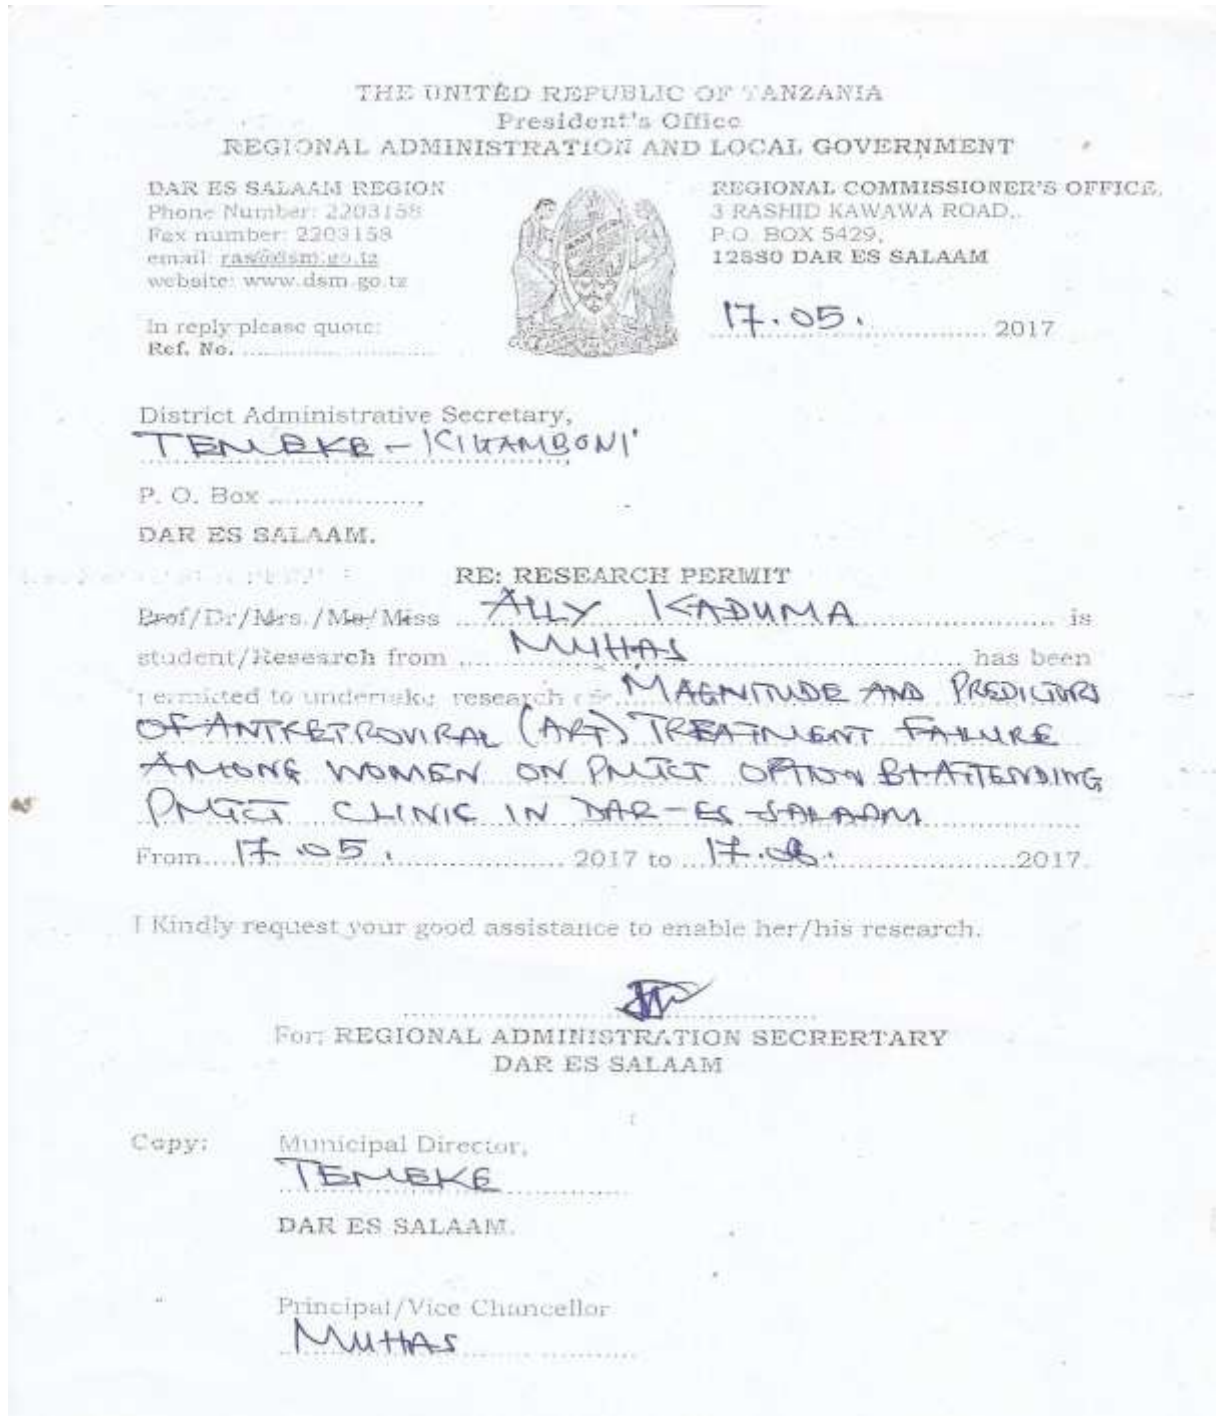 THE UNITED REPUBLIC OF TANZANIA
President's Office
REGIONAL ADMINISTRATION AND LOCAL GOVERNMENT
DAR ES SALAAM REGION
Phone Number: 2203158
Fax number: 2203158
email: ras@dsm.go.tz
website: www.dsm.go.tz
In reply please quote:
Ref. No. ............
REGIONAL COMMISSIONER'S OFFICE,
3 RASHID KAWAWA ROAD,
P.O. BOX 5429,
12880 DAR ES SALAAM
17.05. 2017
District Administrative Secretary,
TEMEKE - KIGAMBONI
P. O. Box ............
DAR ES SALAAM.
RE: RESEARCH PERMIT
Prof/Dr/Mrs./Ms/Miss ALLY KADUMA is
student/Research from MUHAS has been
permitted to undertake research on MAGNITUDE AND PREDICTORS
OF ANTIRETROVIRAL (ART) TREATMENT FAILURE
AMONG WOMEN ON PMTCT OPTION B+ ATTENDING
PMTCT CLINIC IN DAR-ES-SALAAM
From 17.05. 2017 to 17.08. 2017.
I Kindly request your good assistance to enable her/his research.
For: REGIONAL ADMINISTRATION SECRERTARY
DAR ES SALAAM
Copy: Municipal Director,
TEMEKE
DAR ES SALAAM.
Principal/Vice Chancellor
MUHAS